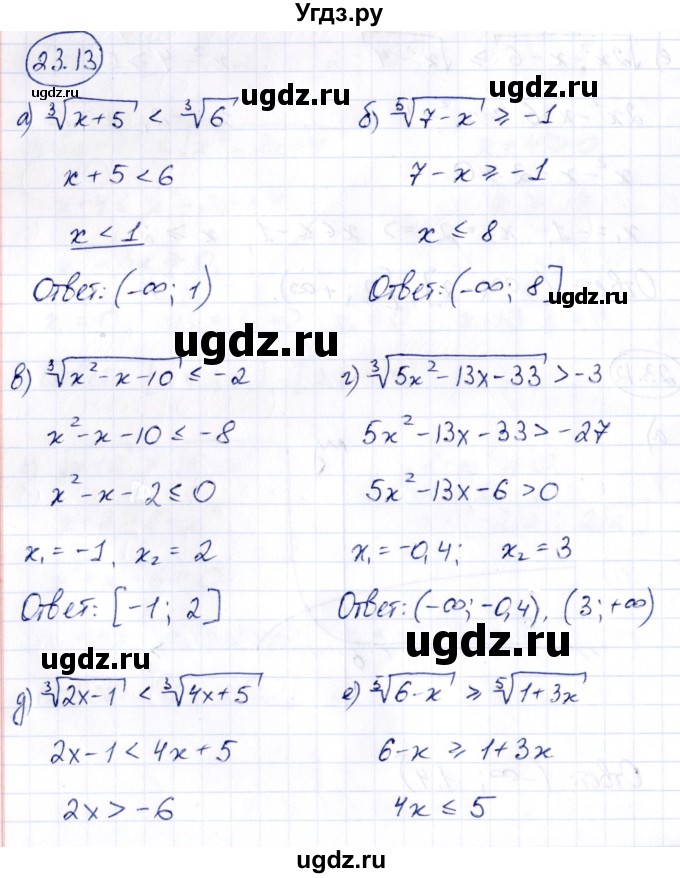 Угдз.ру
23.13
ugdz.ru ugdz.ru ugdz.ru
а) ∛(x+5) < ∛6
x + 5 < 6
x < 1
Ответ: (-∞; 1)
б) ⁵√(7-x) ≥ -1
7 - x ≥ -1
x ≤ 8
Ответ: (-∞; 8]
ugdz.ru
ugdz.ru
в) ∛(x²-x-10) ≤ -2
x² - x - 10 ≤ -8
x² - x - 2 ≤ 0
x₁ = -1, x₂ = 2
Ответ: [-1; 2]
г) ∛(5x²-13x-33) > -3
5x² - 13x - 33 > -27
5x² - 13x - 6 > 0
x₁ = -0,4; x₂ = 3
Ответ: (-∞; -0,4), (3; +∞)
ugdz.ru ugdz.ru
д) ∛(2x-1) < ∛(4x+5)
2x - 1 < 4x + 5
2x > -6
е) ⁵√(6-x) ≥ ⁵√(1+3x)
6 - x ≥ 1 + 3x
4x ≤ 5
ugdz.ru